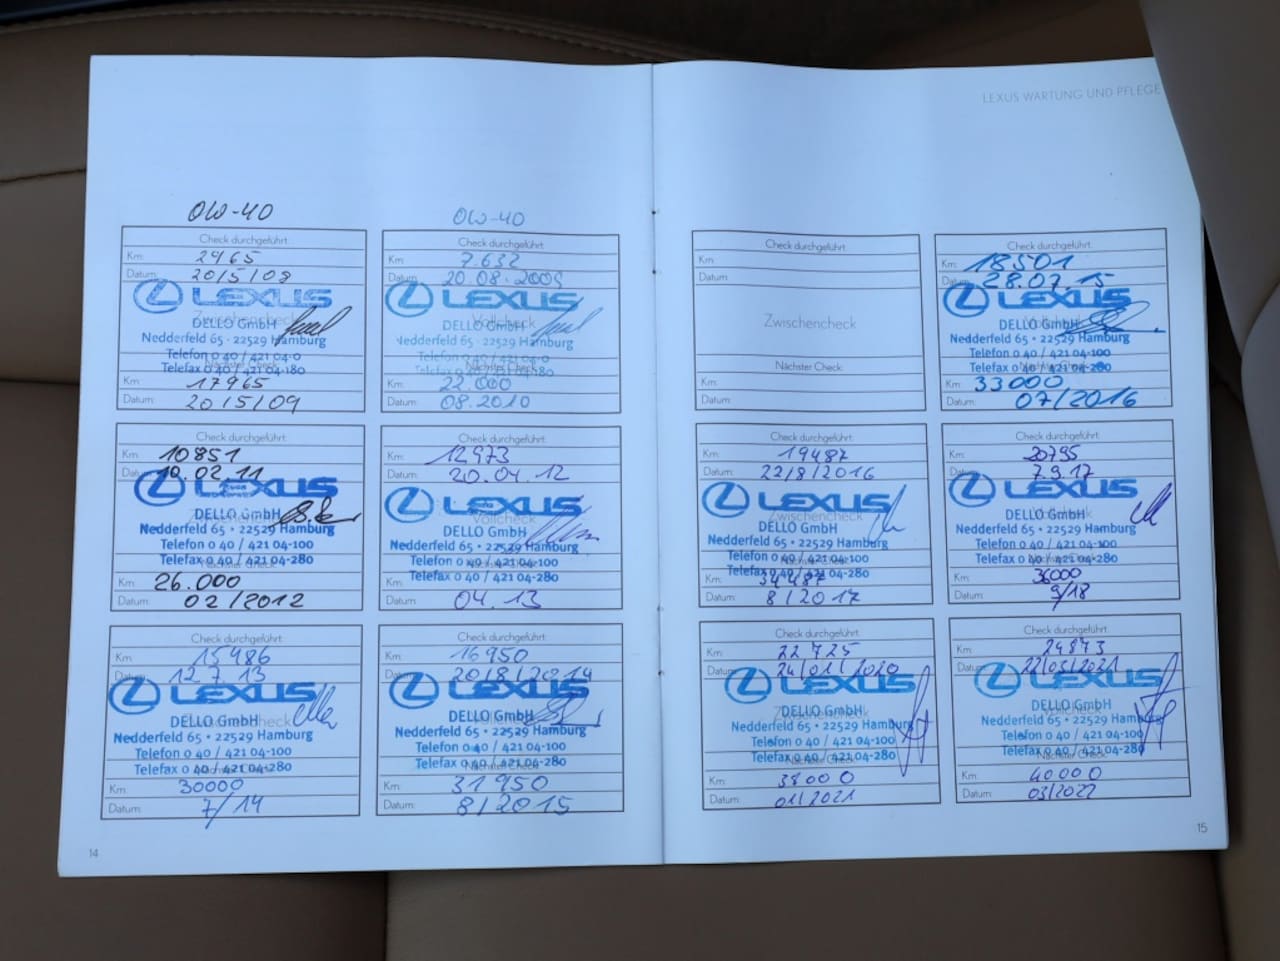 LEXUS WARTUNG UND PFLEGE
OW-40
Check durchgeführt
Km: 2965
Datum: 20/5/08
LEXUS
Zwischencheck
DELLO GmbH
Nedderfeld 65 • 22529 Hamburg
Telefon 0 40 / 421 04-0
Telefax 0 40 / 421 04-180
Nächster Check:
Km: 17965
Datum: 20/5/09
OW-40
Check durchgeführt
Km: 7.632
Datum: 20.08.2009
LEXUS
Vollcheck
DELLO GmbH
Nedderfeld 65 • 22529 Hamburg
Telefon 0 40 / 421 04-0
Telefax 0 40 / 421 04-180
Nächster Check:
Km: 22.000
Datum: 08.2010
Check durchgeführt
Km: 10851
Datum: 10.02.11
LEXUS
DELLO GmbH
Nedderfeld 65 • 22529 Hamburg
Telefon 0 40 / 421 04-100
Telefax 0 40 / 421 04-280
Nächster Check:
Km: 26.000
Datum: 02/2012
Check durchgeführt
Km: 12973
Datum: 20.04.12
LEXUS
Vollcheck
DELLO GmbH
Nedderfeld 65 • 22529 Hamburg
Telefon 0 40 / 421 04-100
Telefax 0 40 / 421 04-280
Km:
Datum: 04.13
Check durchgeführt
Km: 15486
Datum: 12.7.13
LEXUS
Zwischencheck
DELLO GmbH
Nedderfeld 65 • 22529 Hamburg
Telefon 0 40 / 421 04-100
Telefax 0 40 / 421 04-280
Nächster Check:
Km: 30000
Datum: 7/14
Check durchgeführt
Km: 16950
Datum: 20/8/2014
LEXUS
Vollcheck
DELLO GmbH
Nedderfeld 65 • 22529 Hamburg
Telefon 0 40 / 421 04-100
Telefax 0 40 / 421 04-280
Nächster Check:
Km: 31950
Datum: 8/2015
14
Check durchgeführt
Km:
Datum:
Zwischencheck
Nächster Check:
Km:
Datum:
Check durchgeführt
Km: 18501
Datum: 28.07.15
LEXUS
Vollcheck
DELLO GmbH
Nedderfeld 65 • 22529 Hamburg
Telefon 0 40 / 421 04-100
Telefax 0 40 / 421 04-280
Nächster Check:
Km: 33000
Datum: 07/2016
Check durchgeführt
Km: 19487
Datum: 22/8/2016
LEXUS
Zwischencheck
DELLO GmbH
Nedderfeld 65 • 22529 Hamburg
Telefon 0 40 / 421 04-100
Telefax 0 40 / 421 04-280
Km: 34487
Datum: 8/2017
Check durchgeführt
Km: 20795
Datum: 7.9.17
LEXUS
DELLO GmbH
Nedderfeld 65 • 22529 Hamburg
Telefon 0 40 / 421 04-100
Telefax 0 40 / 421 04-280
Nächster Check:
Km: 36000
Datum: 9/18
Check durchgeführt
Km: 22725
Datum: 24/01/2020
LEXUS
Zwischencheck
DELLO GmbH
Nedderfeld 65 • 22529 Hamburg
Telefon 0 40 / 421 04-100
Telefax 0 40 / 421 04-280
Nächster Check:
Km: 38000
Datum: 01/2021
Check durchgeführt
Km: 24873
Datum: 22/03/2021
LEXUS
Vollcheck
DELLO GmbH
Nedderfeld 65 • 22529 Hamburg
Telefon 0 40 / 421 04-100
Telefax 0 40 / 421 04-280
Nächster Check:
Km: 40000
Datum: 03/2022
15